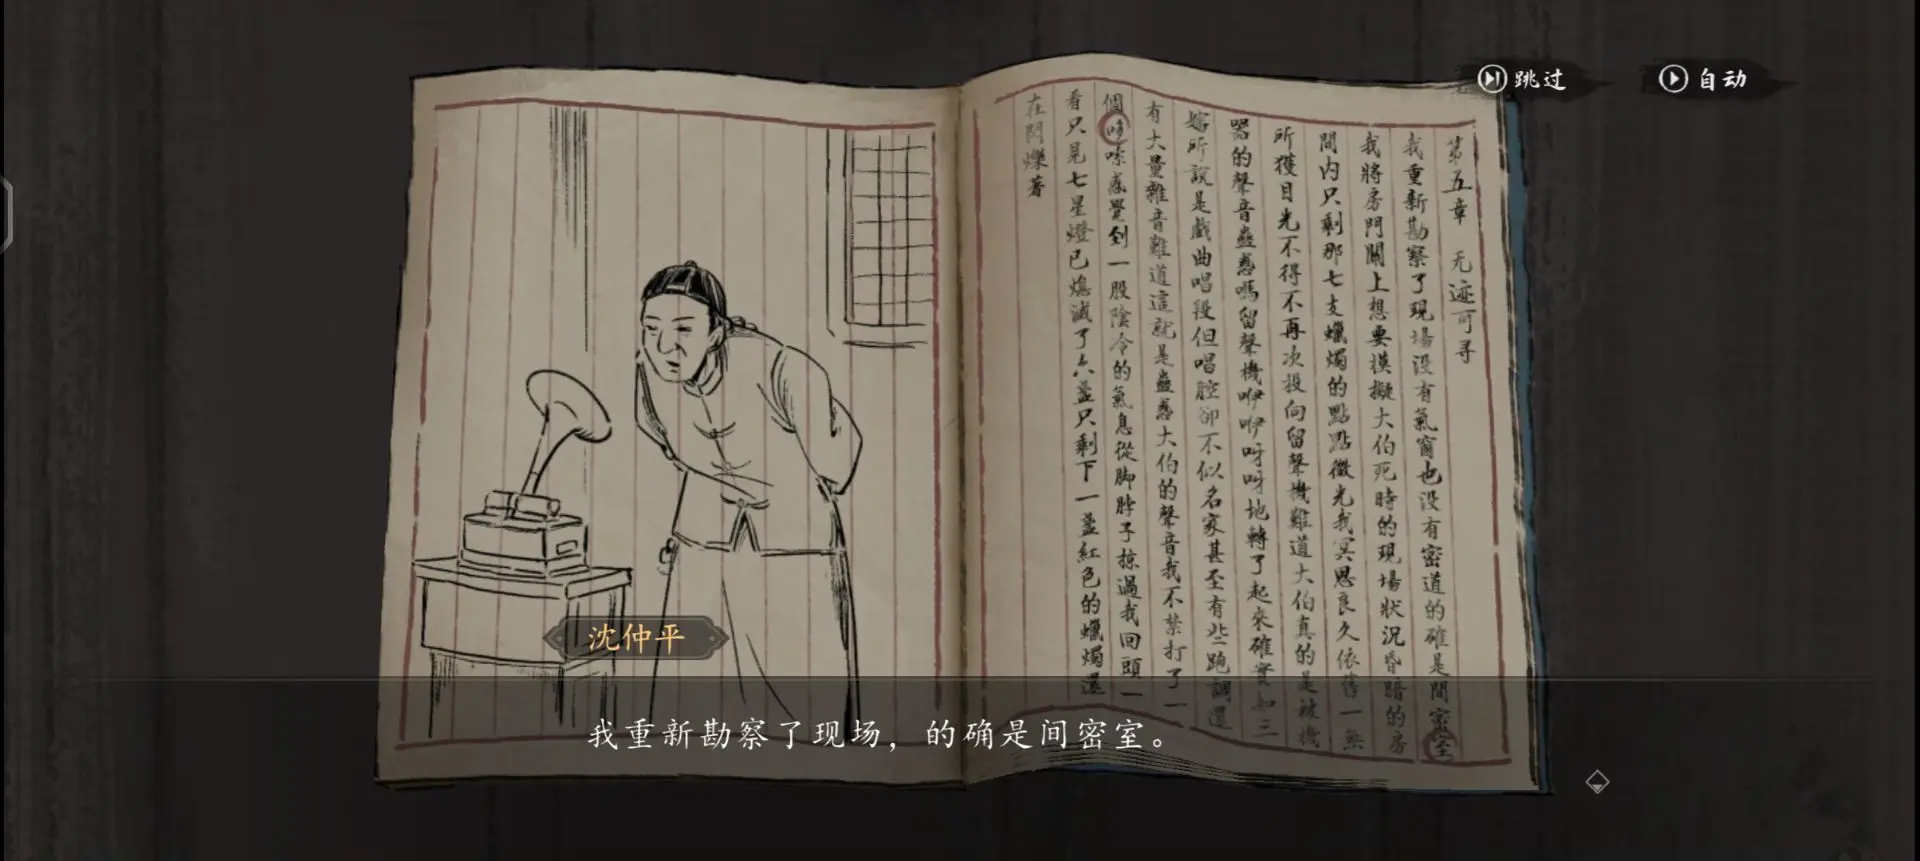 跳过
自动
第五章 无迹可寻
我重新勘察了现場没有氣窗也没有密道的確是間密室
我將房門關上想要模擬大伯死時的現場狀況昏暗的房
間内只剩那七支蠟燭的點點微光我冥思良久依舊一無
所獲目光不得不再次投向留聲機難道大伯真的是被機
器的聲音蠱惑嗎留聲機咿咿呀呀地轉了起來確實如三
嬸所說是戲曲唱段但唱腔卻不似名家甚至有些跑調還
有大量雜音難道這就是蠱惑大伯的聲音我不禁打了一
個哆嗦感覺到一股陰冷的氣息從脚脖子掠過我回頭一
看只見七星燈已熄滅了六盞只剩下一盞紅色的蠟燭還
在閃爍著
沈仲平
我重新勘察了现场，的确是间密室。